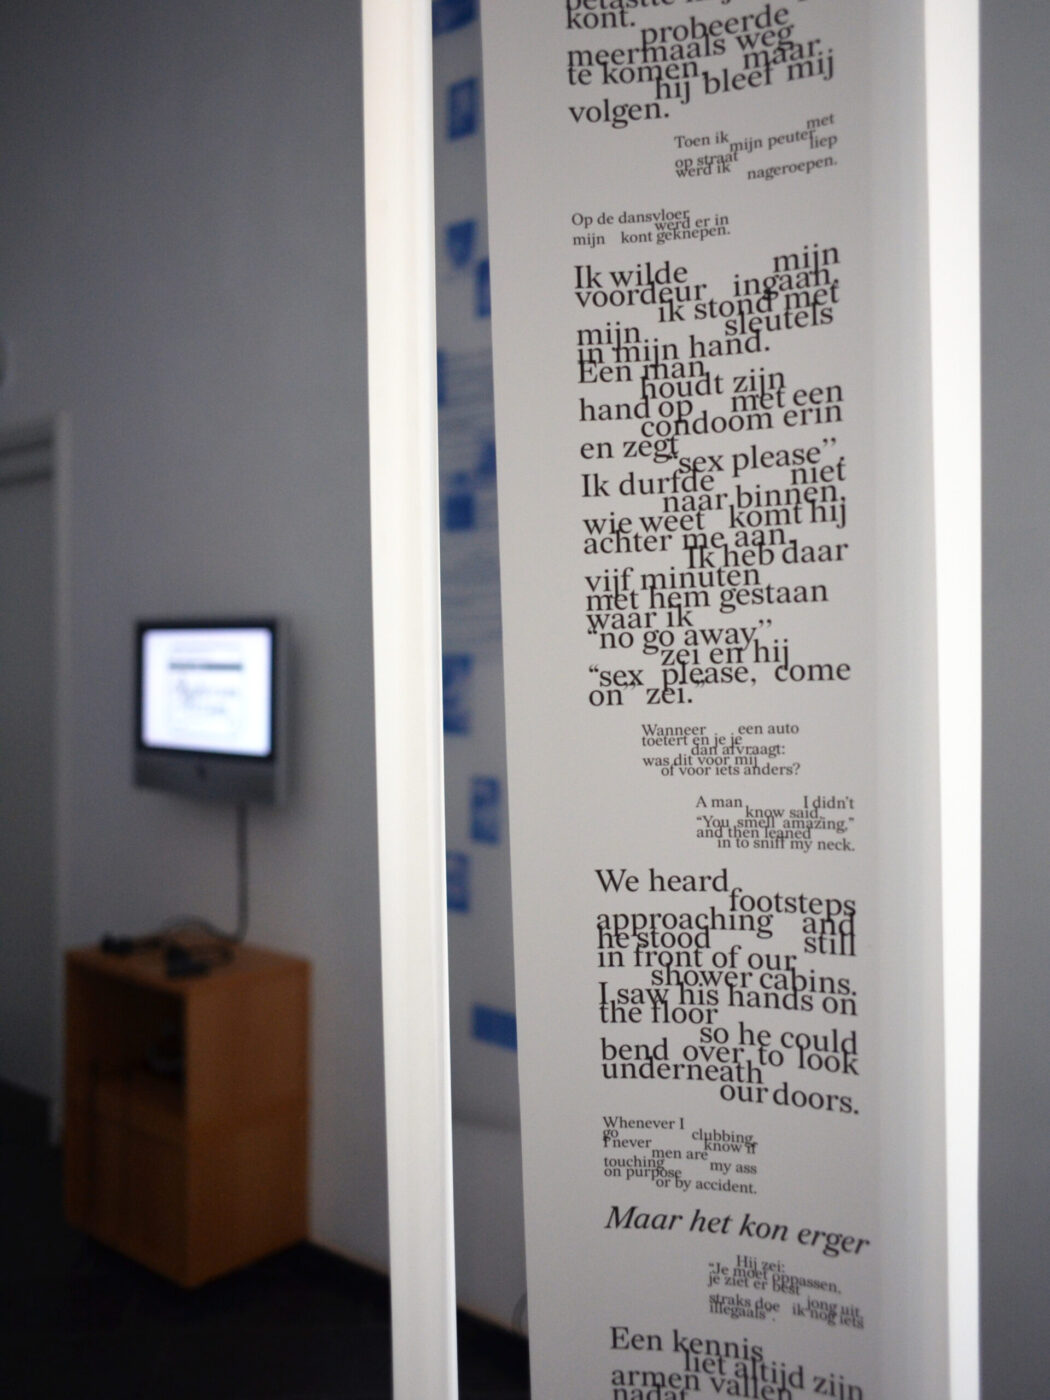 betastte mijn
kont.
probeerde
meermaals weg
te komen, maar
hij bleef mij
volgen.
Toen ik met
mijn peuter
op straat liep
werd ik nageroepen.
Op de dansvloer
werd er in
mijn kont geknepen.
Ik wilde mijn
voordeur ingaan,
ik stond met
mijn sleutels
in mijn hand.
Een man
houdt zijn
hand op met een
condoom erin
en zegt
“sex please”.
Ik durfde niet
naar binnen,
wie weet komt hij
achter me aan.
Ik heb daar
vijf minuten
met hem gestaan
waar ik
“no go away”
zei en hij
“sex please, come
on” zei.
Wanneer een auto
toetert en je je
dan afvraagt:
was dit voor mij
of voor iets anders?
A man I didn’t
know said,
“You smell amazing,”
and then leaned
in to sniff my neck.
We heard
footsteps
approaching and
he stood still
in front of our
shower cabins.
I saw his hands on
the floor
so he could
bend over to look
underneath
our doors.
Whenever I
go clubbing,
I never know if
men are
touching my ass
on purpose
or by accident.
Maar het kon erger
Hij zei:
“Je moet oppassen,
je ziet er best jong uit,
straks doe ik nog iets
illegaals”.
Een kennis
liet altijd zijn
armen vallen
nadat